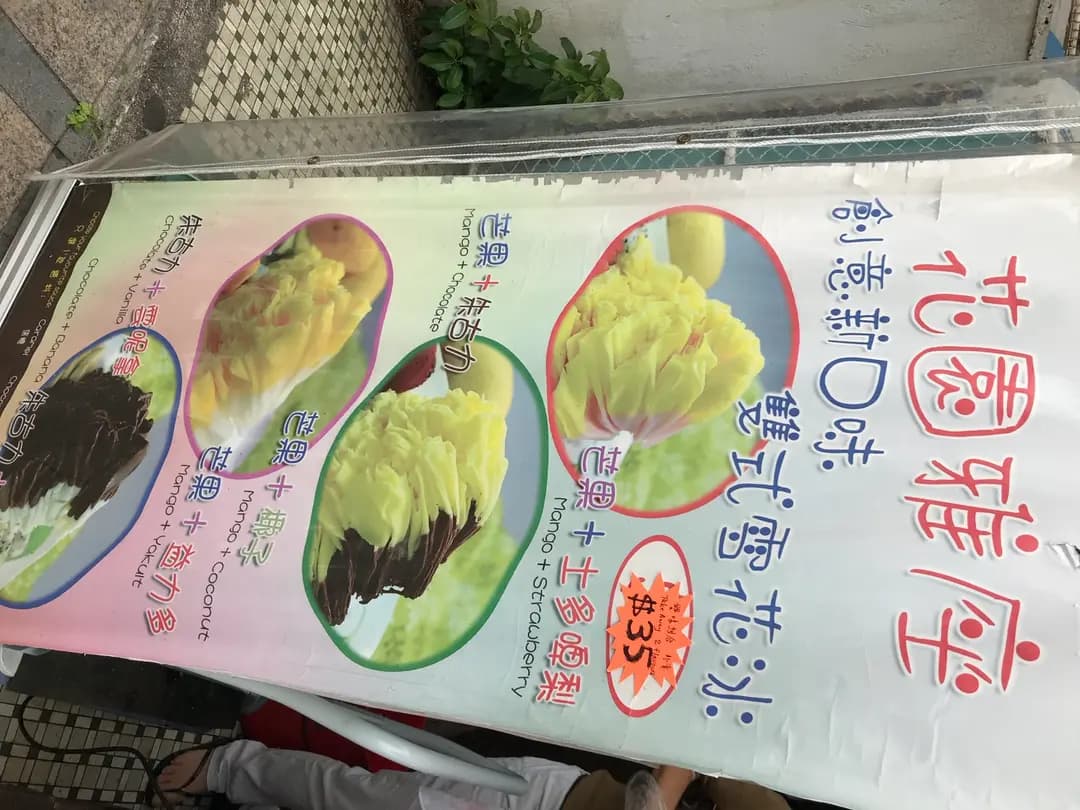 花園雅座
創意新口味
雙式雪花冰
$35
芒果+士多啤梨
Mango + Strawberry
芒果+朱古力
Mango + Chocolate
芒果+椰子
Mango + Coconut
芒果+益力多
Mango + Yakult
朱古力+雲呢拿
Chocolate + Vanilla
朱古力+
Chocolate + Banana
Choose your favourite sauce: Caramel